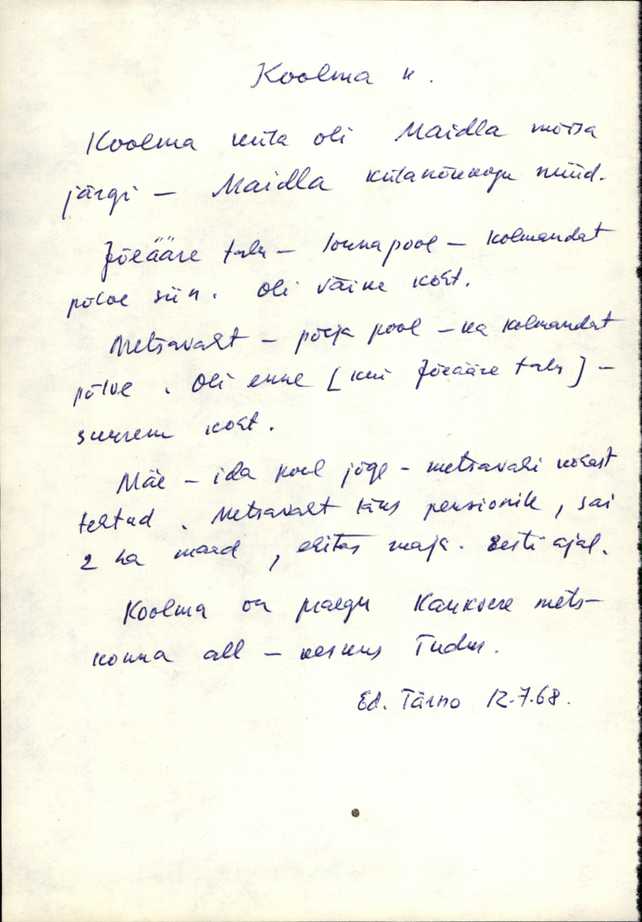 Koolma k.
Koolma küla oli Maidla mõisa
järgi – Maidla külanõukogu nüüd.
Jõeääre talu – lõuna pool – kolmandat
põlve siin. Oli väike koht.
Metsavaht – põhja pool – ka kolmandat
põlve. Oli enne [kui Jõeääre talu] –
suurem koht.
Mäe – ida pool jõge – metsavahi kohast
tehtud. Metsavaht läks pensionile, sai
2 ha maad, ehitas maja. Eesti ajal.
Koolma on praegu Kauksere mets-
konna all – keskus Tudus.
Ed. Tärno 12.7.68.